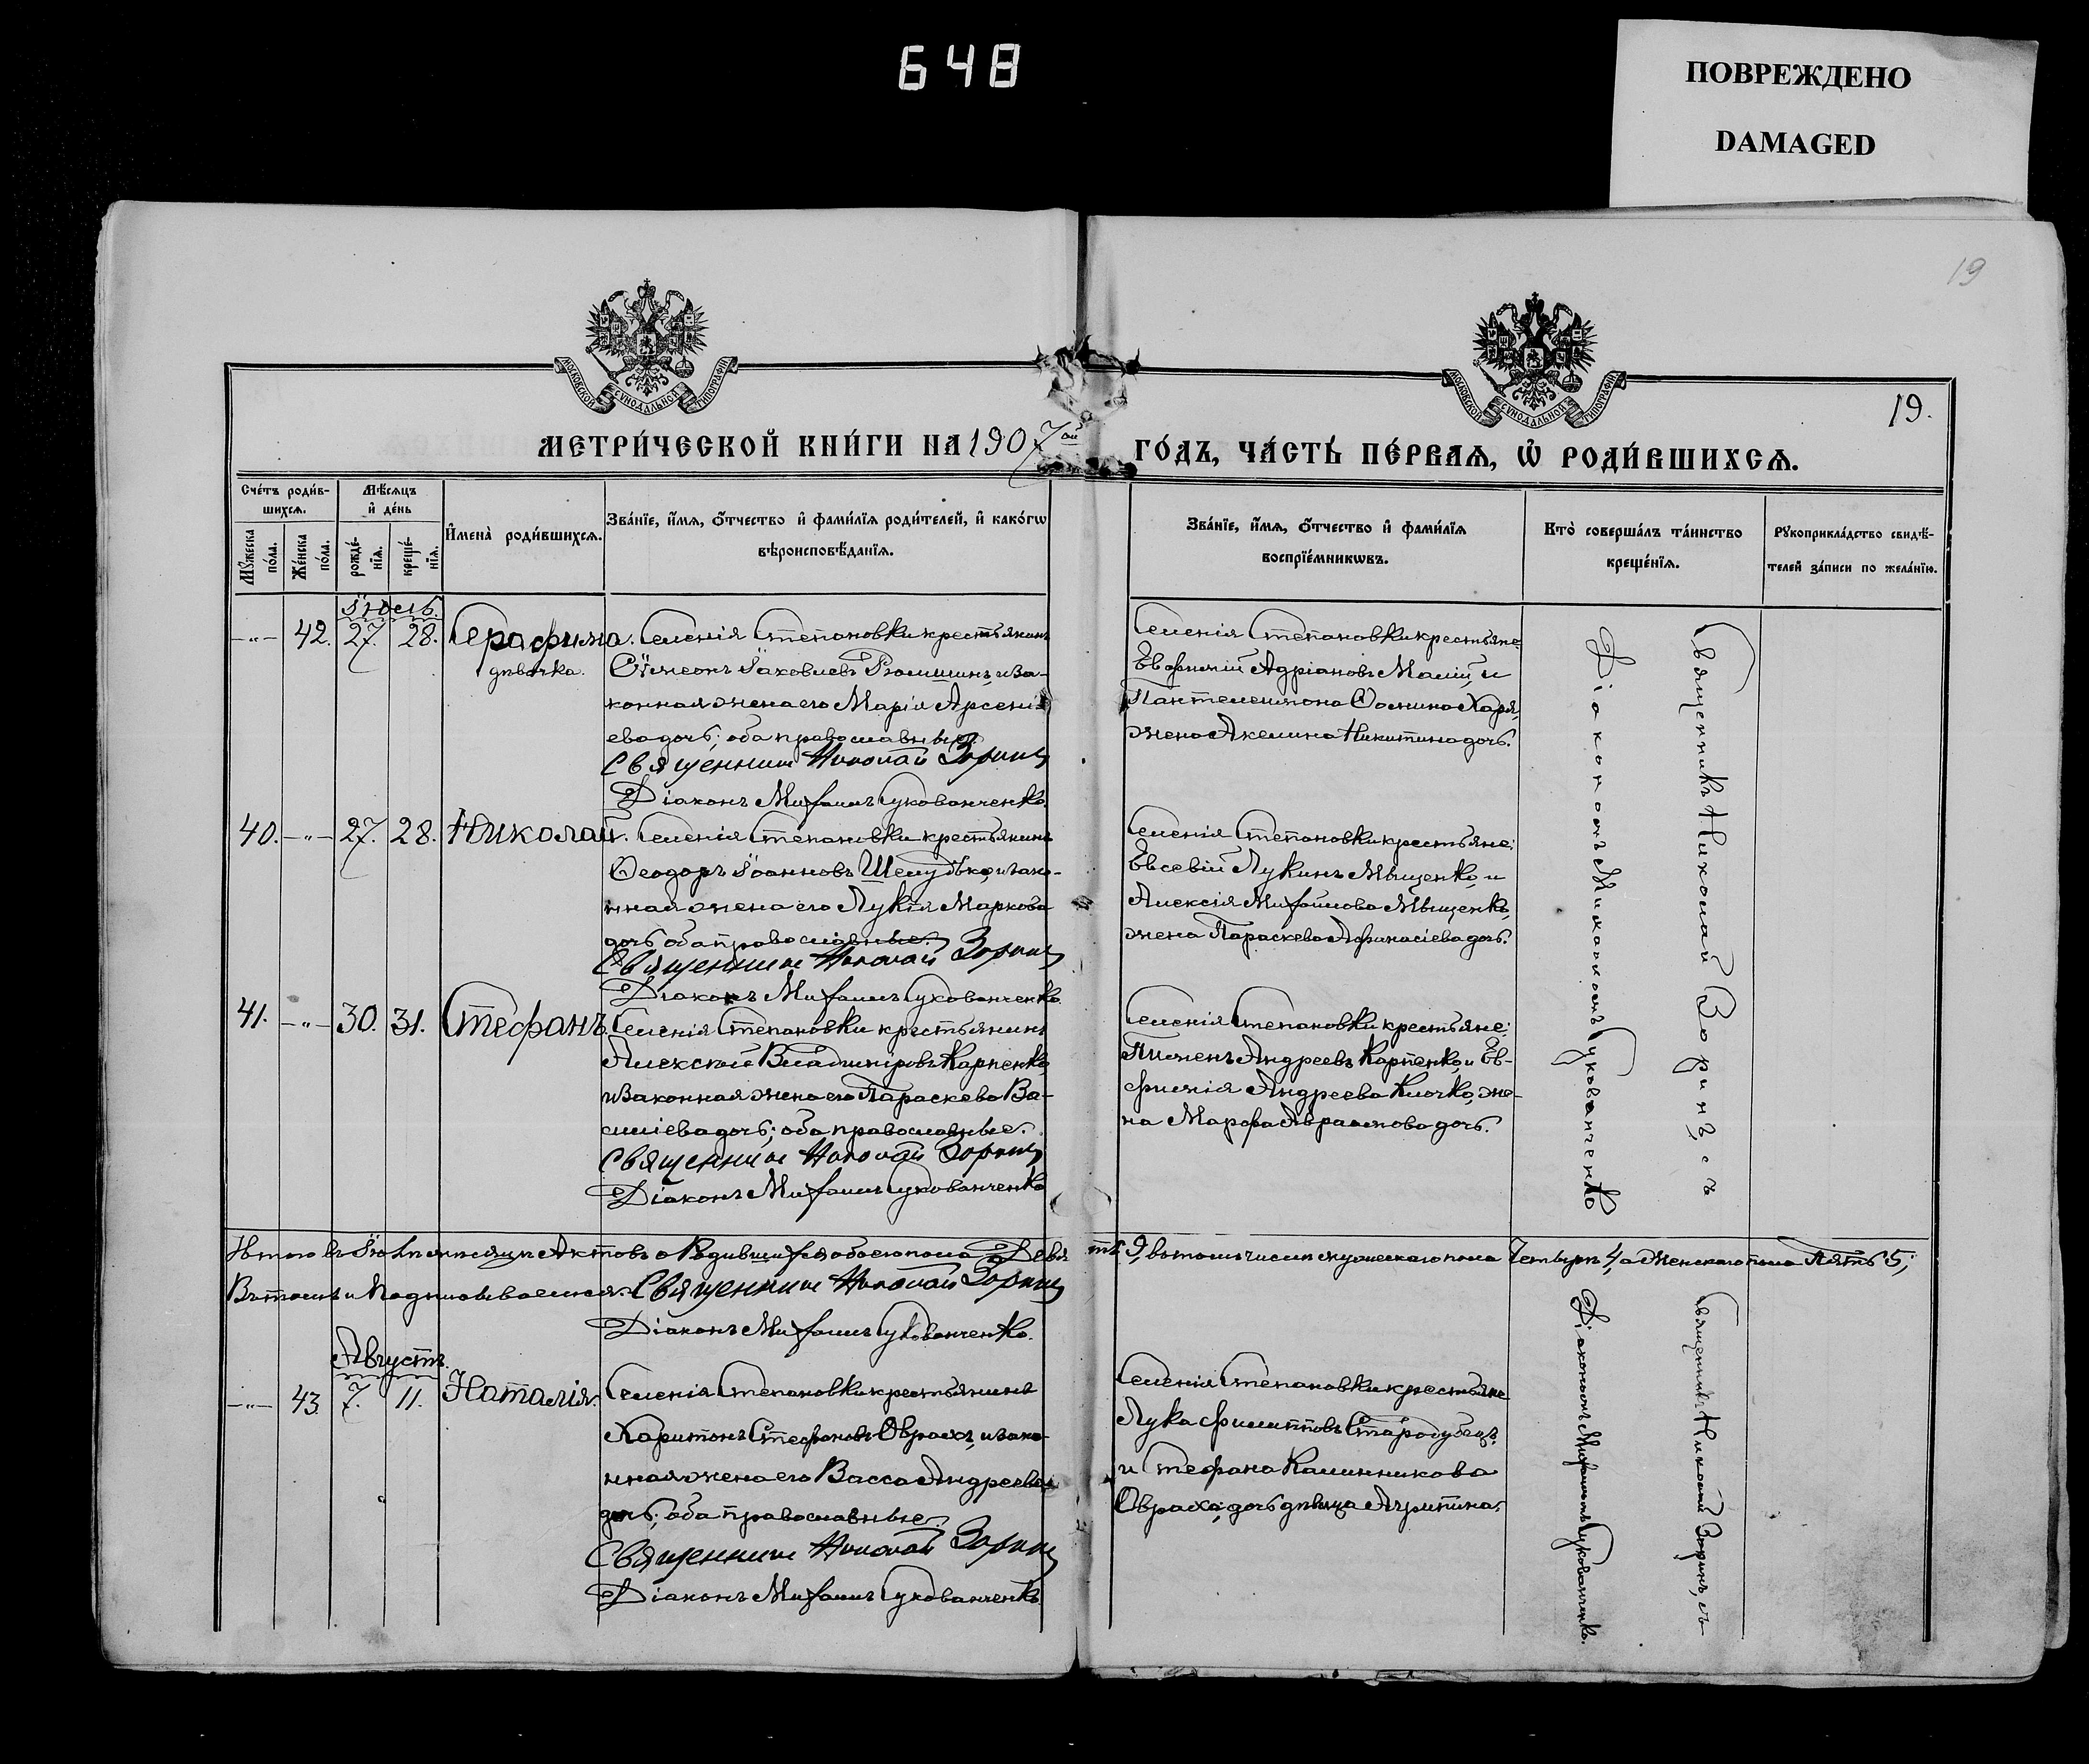 648
ПОВРЕЖДЕНО
DAMAGED
19
МОСКОВСКОЙ СУНОДАЛЬНОЙ ТИПОГРАФІИ
МОСКОВСКОЙ СУНОДАЛЬНОЙ ТИПОГРАФІИ
19.
МЕТРИ́ЧЕСКОЙ КНИ́ГИ НА 1907ой ГО́ДЪ, ЧА́СТЬ ПЕ́РВАѦ, Ѽ РОДИ́ВШИХСѦ.
Сче́тъ роди́в-
шихсѧ.
Мꙋжеска по́ла.
Же́нска по́ла.
Мѣ́сѧцъ
и҆ де́нь
рожде́-
нїѧ.
креще́-
нїѧ.
И҆мена̀ роди́вшихсѧ.
Зва́нїе, и҆́мѧ, о҆́тчество и҆ фами́лїѧ роди́телей, и҆ како́гѡ
вѣроисповѣ́данїѧ.
Зва́нїе, и҆́мѧ, о҆́тчество и҆ фами́лїѧ
воспрїе́мникѡвъ.
Кто̀ соверша́лъ та́инство
креще́нїѧ.
Рꙋкоприкла́дство свидѣ́-
телей за́писи по жела́нїю.
Іюль.
—„— 42. 27. 28. Серафима
дѣвочка.
Селенія Степановки крестьянинъ
Сѵмеонъ Іаковлевъ и за-
конная жена его Марія Арсені-
ева дочь; оба православные.
Священникъ Николай Зоринъ
Діаконъ Михаилъ Сукованченко.
Селенія Степановки крестьяне:
Евфимій Адріановъ Малій, и
Пантелеимона жена Акелина Никитина дочь.
40. —„— 27. 28. Николай.
Селенія Степановки крестьянинъ
Ѳеодоръ Іоанновъ Шелудько, и зако-
нная жена его Лукія Маркова
дочь оба православные.
Священникъ Николай Зоринъ
Діаконъ Михаилъ Сукованченко.
Селенія Степановки крестьяне:
Евсевій Лукинъ Мыценко, и
Алексія Михайлова Мыценко,
жена Параскева Афанасіева дочь.
41. —„— 30. 31. Стефанъ.
Селенія Степановки крестьянинъ
Алексій Владиміровъ Карпенко,
и законная жена его Параскева Ва-
силіева дочь; оба православные.
Священникъ Николай Зоринъ
Діаконъ Михаилъ Сукованченко
Селенія Степановки крестьяне:
Пименъ Андреевъ Карпенко, и Ев-
фимія Андреева Клочко, же-
на Марѳа Авраамова дочь.
Священникъ Николай Зоринъ, съ
Діакономъ Михаиломъ Сукованченко
Итого въ Іюлѣ мѣсяцѣ Актовъ о Родившихся обоего пола Девять 9, въ томъ числѣ мужескаго пола Четыре 4, а Женскаго пола Пять 5;
Въ томъ и Подписываемся. Священникъ Николай Зоринъ
Діаконъ Михаилъ Сукованченко.
Августъ.
—„— 43. 7. 11. Наталія.
Селенія Степановки крестьянинъ
Харитонъ Стефановъ Оврахъ, и зако-
нная жена его Васса Андреева
дочь; оба православные.
Священникъ Николай Зоринъ
Діаконъ Михаилъ Сукованченко
Селенія Степановки крестьяне
Лука Филипповъ Стародубецъ,
и Стефана Калинникова
Овраха, дочь дѣвица Агрипина.
Священникъ Николай Зоринъ, съ
Діакономъ Михаиломъ Сукованченко.